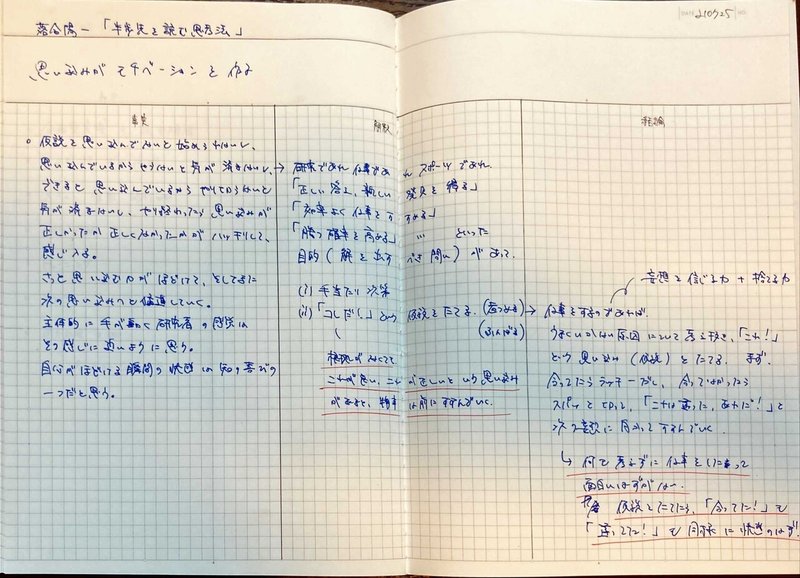 落合陽一「半歩先を読む思考法」
210725
思い込みがモチベーションを作る
事実
仮説を思い込んでないと始められないし、
思い込んでいるからやらないと気が済まないし、
できると思い込んでいるからやりとげないと
気が済まないし、やり終わったら思い込みが
正しかったか正しくなかったかがハッキリして、
感じ入る。
きっと思い込む力がほどけて、そしてまた
次の思い込みへと伝導していく。
主体的に手が動く研究者の感性は
そう感じに近いように思う。
自分がほどける瞬間の快感は知の喜びの
一つだと思う。
解釈
→ 研究であれ仕事であれスポーツであれ、
「正しい答え、新しい発見を得る」
「効率よく仕事をすすめる」
「勝つ確率を高める」… といった
目的(解を出すべき問い)があって、
(i) 手当たり次第
(ii)「コレだ!」という仮説をたてる。
根拠がなくても
これが思い、これが正しいという思い込み
があると、物事は前にすすんでいく。
理論
妄想を信じる力 + 捨てる力
→ 仕事をするのであれば、
うまくいかない原因について考え抜き、「これ!」
という思い込み(仮説)をたてる。まず、
合ってたらラッキーだし、合ってなかったら
スパッと切って、「これは違った、あれだ!」と
次の妄想に向かってすすんでいく
↳ 何も考えずに仕事をしたって
面白いはずがない。
仮説をたてたら、「合ってた!」も
「違ってた!」も同様に快感のはず!